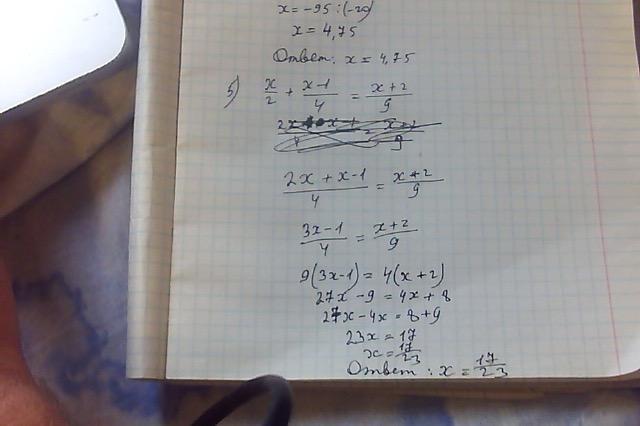 x = -95 : (-20)
x = 4,75
Ответ: x = 4,75
5) x/2 + x-1/4 = x+2/9
2x + x-1/4 = x+2/9
3x-1/4 = x+2/9
9(3x-1) = 4(x+2)
27x - 9 = 4x + 8
27x - 4x = 8 + 9
23x = 17
x = 17/23
Ответ: x = 17/23